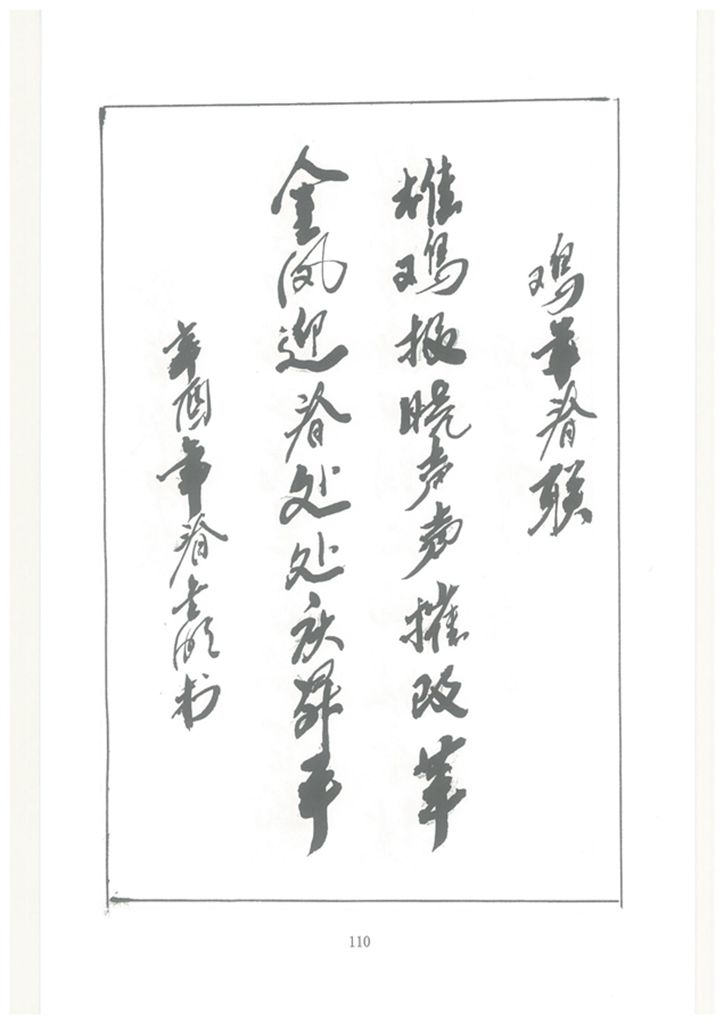 鸡年春联
雄鸡报晓声声摧改革
金凤迎春处处庆升平
辛酉年春书
110